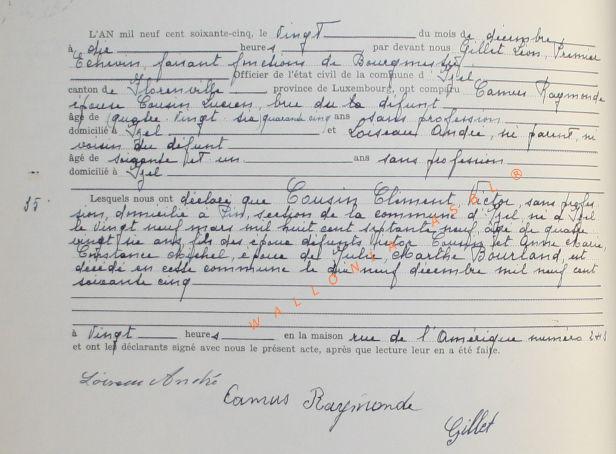 L'AN mil neuf cent soixante-cinq, le vingt du mois de décembre
à dix heures par devant nous Gillet Léon, Premier
Echevin, faisant fonctions de Bourgmestre
Officier de l'état civil de la commune d' Izel
canton de Florenville province de Luxembourg, ont comparu Camus Raymonde
épouse Cousin Lucien, bru du défunt
âgée de quarante cinq ans sans profession
domicilié à Izel et Loiseau André, ni parent, ni
voisin du défunt
âgé de soixante et un ans sans profession
domicilié à Izel
35
Lesquels nous ont déclaré que Cousin Clément, Victor, sans profes
sion, domicilié à Pin, section de la commune d'Izel, né à Izel
le vingt neuf mars mil huit cent septante neuf, âgé de quatre
vingt six ans, fils des époux défunts, Cousin et Anne Marie,
Constance Michel, époux de Julie, Marthe Bourland, est
décédé en cette commune le dix neuf décembre mil neuf cent
soixante cinq
à vingt heures en la maison rue de l'Amérique numéro
et ont les déclarants signé avec nous le présent acte, après que lecture leur en a été faite.
Loiseau André
Camus Raymonde
Gillet
WALLONIA ASBL ®